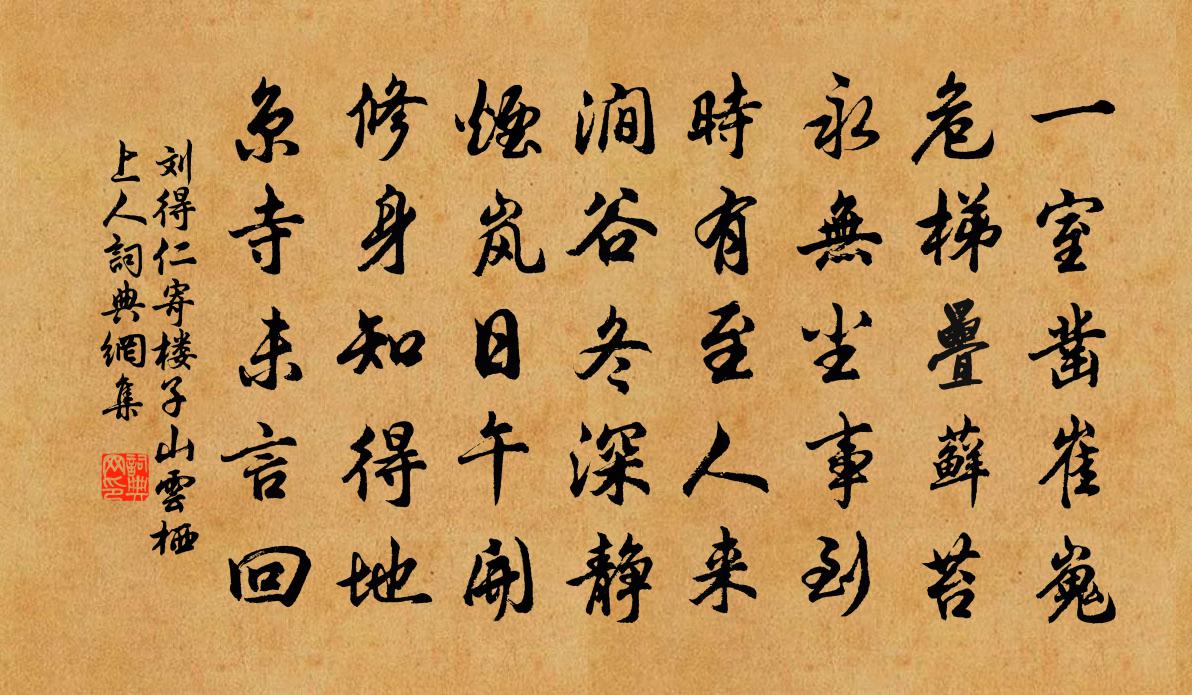 一室凿崔嵬
危梯疊蘚苔
永無尘事到
時有至人来
澗谷冬深静
煙岚日午開
修身知得地
京寺未言回
刘得仁寄楼子山雲栖
上人詞典網集
詞典网印